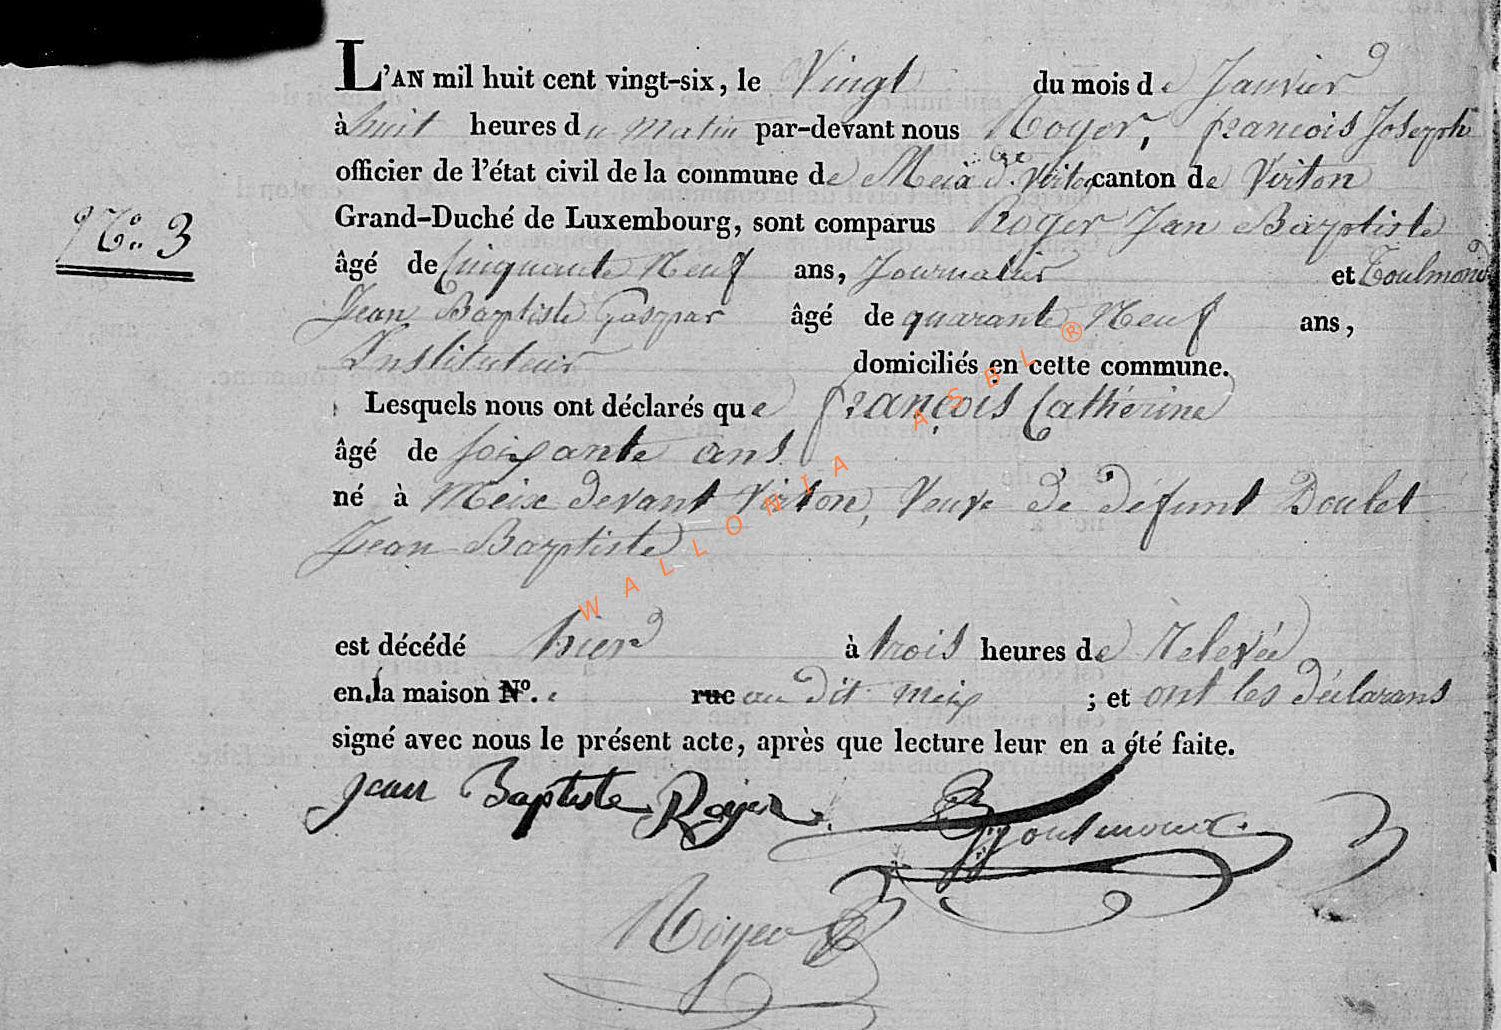 L'AN mil huit cent vingt-six, le Vingt du mois de Janvier
à huit heures du Matin par-devant nous Noyer, françois Joseph
officier de l'état civil de la commune de Meix dt Virton canton de Virton
Nº. 3
Grand-Duché de Luxembourg, sont comparus Roger Jan Baptiste
âgé de Cinquante Neuf ans, Journalier et Toulmond
Jean Baptiste Gaspar âgé de quarante Neuf ans,
Instituteur domiciliés en cette commune.
Lesquels nous ont déclarés que françois Catherine
âgé de soixante ans
né à Meix devant Virton, Veuve de défunt Doulet
Jean Baptiste
WALLONIA ASBL ®
est décédé hier à trois heures de Relevée
en la maison Nº. rue au dit Meix ; et ont les déclarans
signé avec nous le présent acte, après que lecture leur en a été faite.
Jean Baptiste Rojer
Noyer